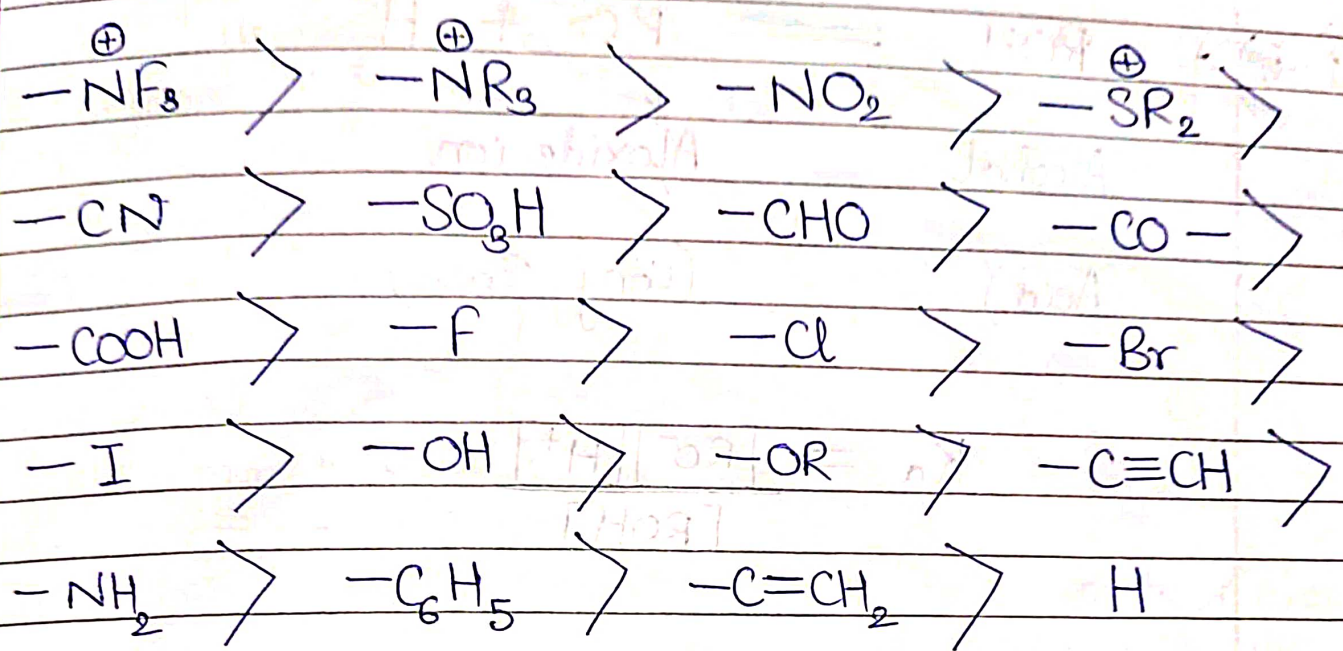 −N⊕F₃ > −N⊕R₃ > −NO₂ > −S⊕R₂ >
−CN > −SO₃H > −CHO > −CO− >
−COOH > −F > −Cl > −Br >
−I > −OH > −OR > −C≡CH >
−NH₂ > −C₆H₅ > −C=CH₂ > H